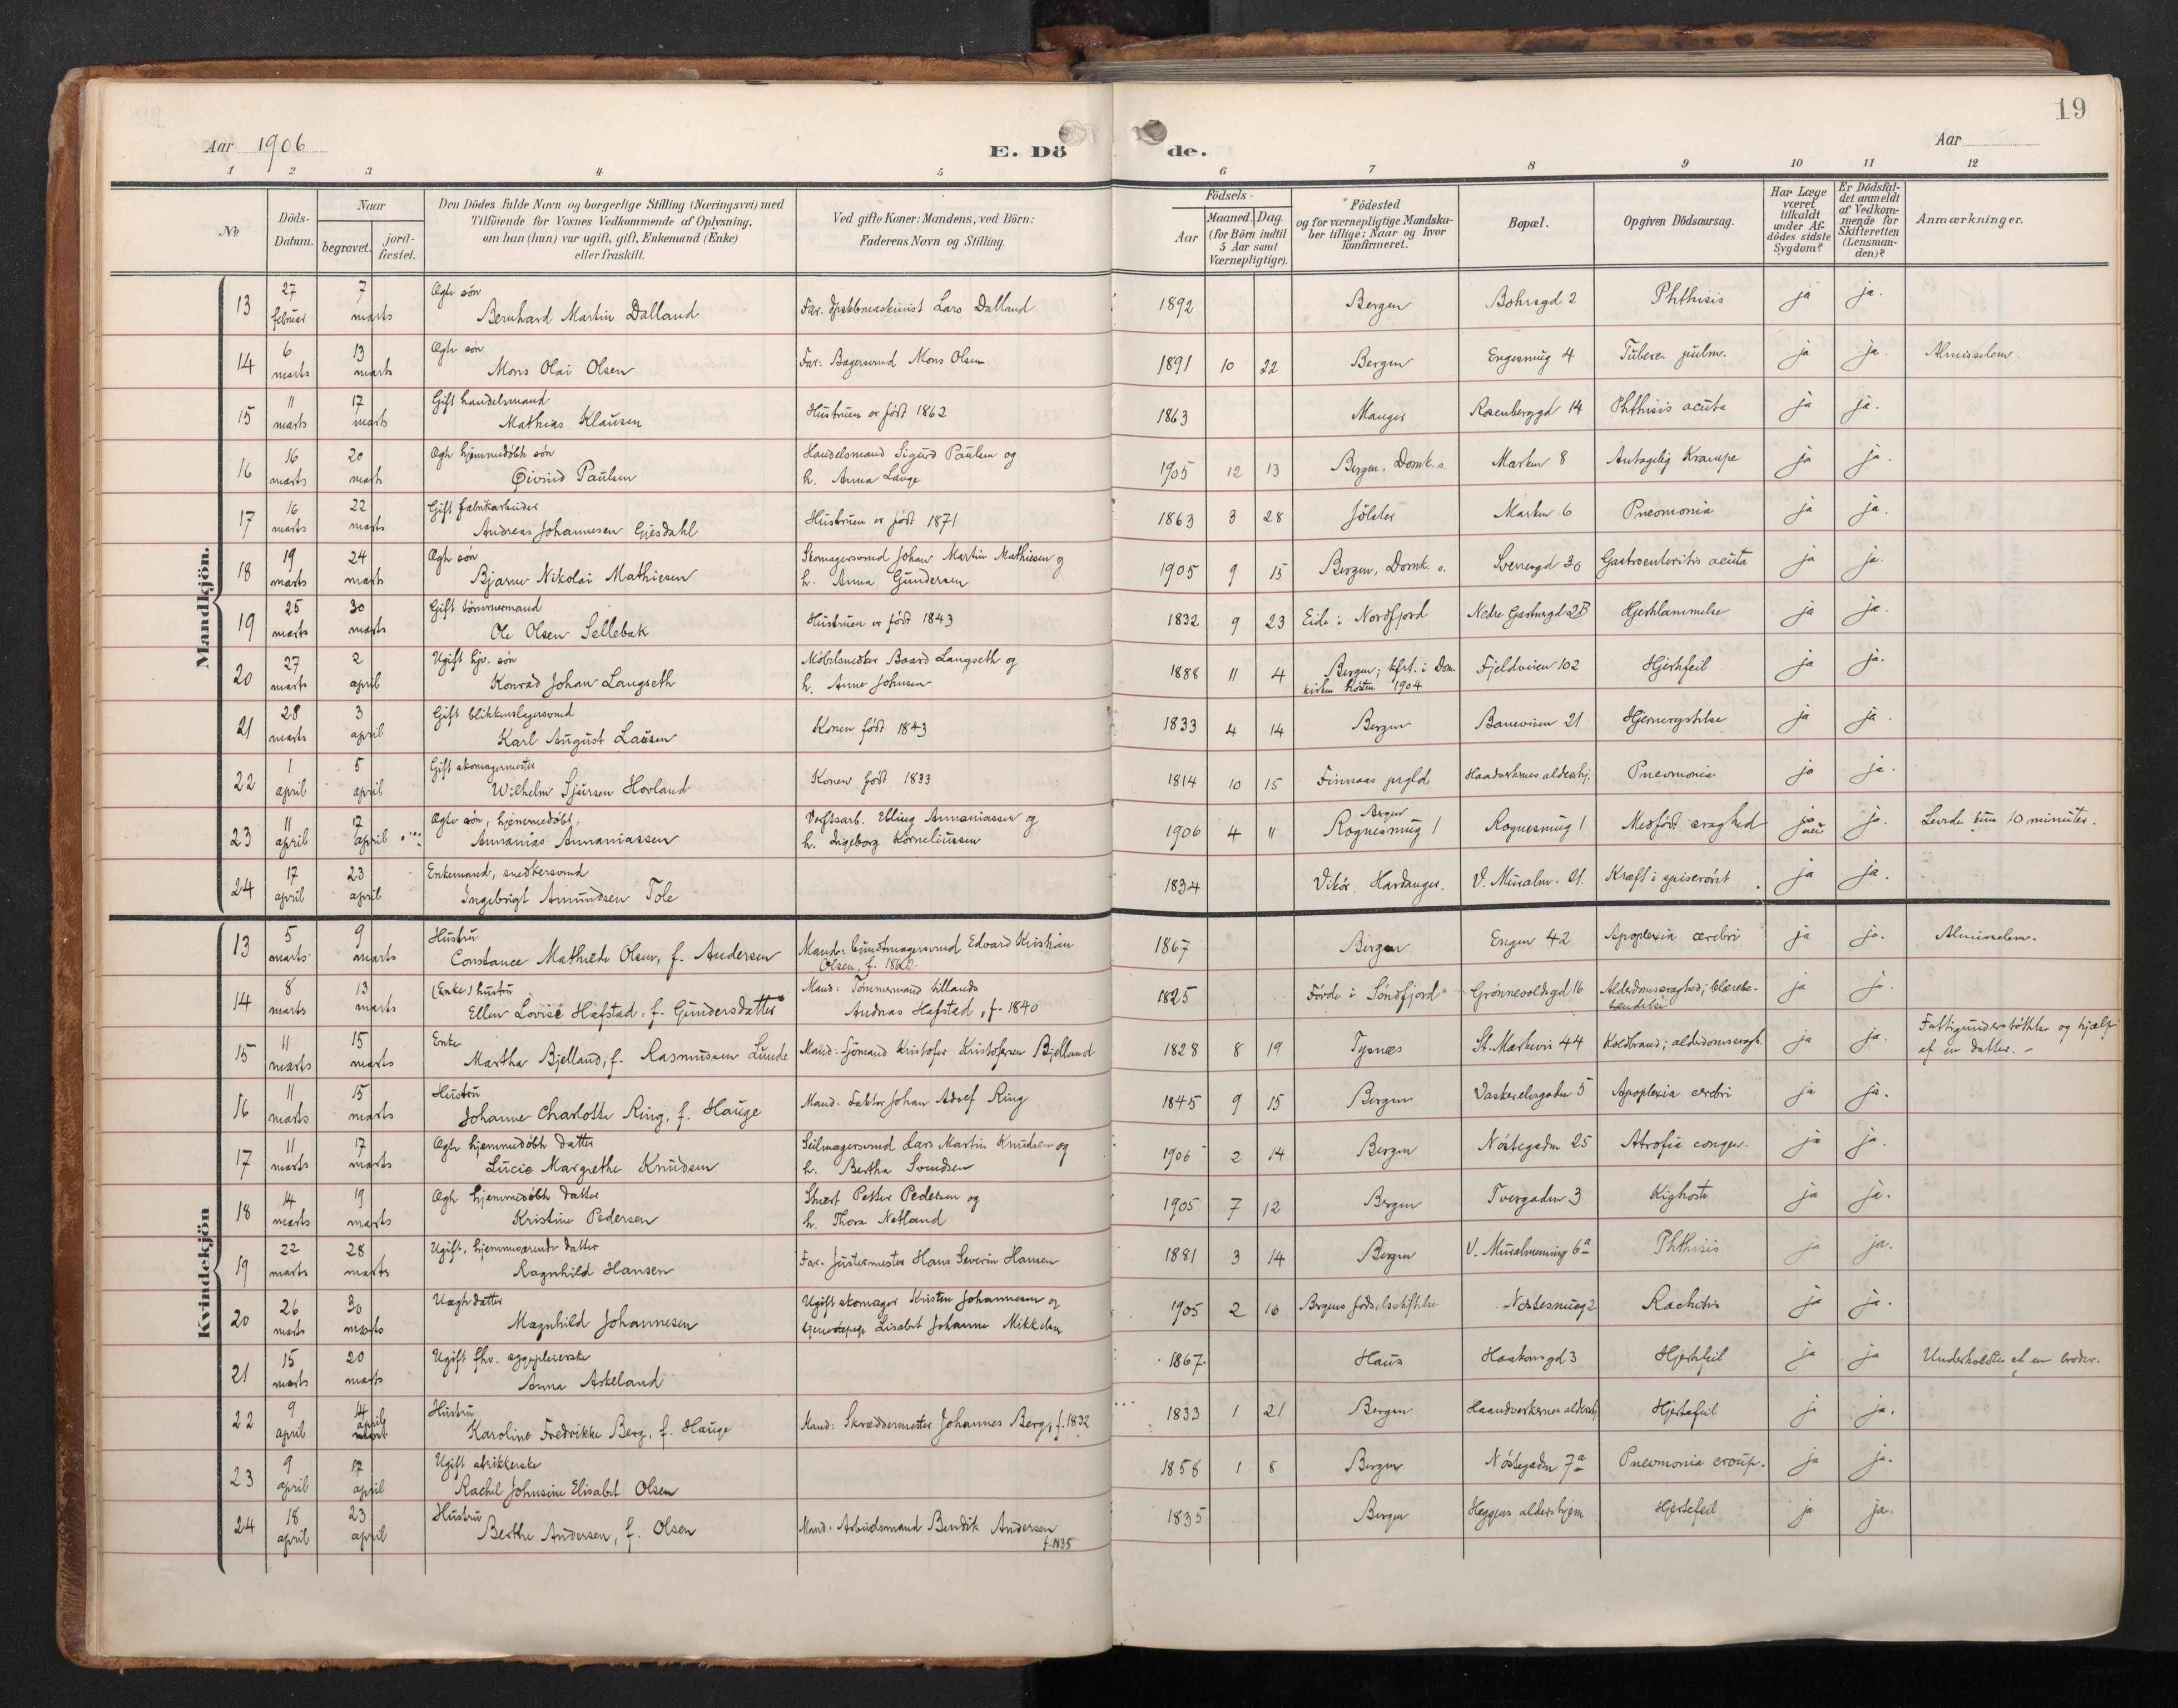 19
Aar 1906
E. Döde.
Aar
1 2 3 4 5 6 7 8 9 10 11 12
No
Döds-Datum.
Naar
begravet.
jord-fæstet.
Den Dödes fulde Navn og borgerlige Stilling (Næringsvei) med
Tilföiende for Voxnes Vedkommende af Oplysning,
om han (hun) var ugift, gift, Enkemand (Enke)
eller fraskilt.
Ved gifte Koner: Mandens, ved Börn:
Faderens Navn og Stilling.
Födsels-
Aar
Maaned. Dag.
(for Börn indtil
5 Aar samt
Værnepligtige).
Födested
og for værnepligtige Mandska-
ber tillige: Naar og hvor
konfirmeret.
Bopæl.
Opgiven Dödsaarsag.
Har Læge
været
tilkaldt
under Af-
dödes sidste
Sygdom?
Er Dödsfal-
det anmeldt
af Vedkom-
mende for
Skifteretten
(Lensman-
den)?
Anmærkninger.
Mandkjön.
13 27 februar 7 marts Ægte søn
Bernhard Martin Dalland Far. Lars Dalland 1892 Bergen Bohrsgd 2 Phthisis ja ja.
14 6 marts 13 marts Ægte søn
Mons Olai Olsen Far: Bagersvend Mons Olsen 1891 10 22 Bergen Engesmug 4 Tuberc. pulm. ja ja. Almisselem.
15 11 marts 17 marts Gift handelsmand
Mathias Klausen Hustruen er født 1862 1863 Manger Rosenberggd 14 Phthisis acuta ja ja.
16 16 marts 20 marts Ægte hjemmedøbt søn
Øivind Paulsen Handelsmand Sigurd Paulsen og
h. Anna Lange 1905 12 13 Bergen, Domk. s. Marken 8 Antagelig Krampe ja ja.
17 16 marts 22 marts Gift fabrikarbeider
Andreas Johannesen Gjesdahl Hustruen er født 1871 1863 3 28 Jølster Marken 6 Pneomonia ja ja.
18 19 marts 24 marts Ægte søn
Bjarne Nikolai Mathiesen Skomagersvend Johan Martin Mathiesen og
h. Anna Gundersen 1905 9 15 Bergen, Domk. s. Sverresgd 30 Gastroenteritis acuta ja ja.
19 25 marts 30 marts Gift tømmermand
Ole Olsen Sellebak Hustruen er født 1843 1832 9 23 Eide i Nordfjord Nedre 2B Hjertelammelse ja ja.
20 27 marts 2 april Ugift hjv. søn
Konrad Johan Langseth Møbelsnedker Baard Langseth og
h. Anne Johnsen 1888 11 4 Bergen; kfrt. i Dom-
kirken høsten 1904 Fjeldveien 102 Hjertefeil ja ja.
21 28 marts 3 april Gift blikkenslagersvend
Karl August Lausen Konen født 1843 1833 4 14 Bergen Baneveien 21 Hjernerystelse ja ja.
22 1 april 5 april Gift skomagermester
Wilhelm Sjursen Hovland Konen født 1833 1814 10 15 Finnaas prgld Haandverkernes aldershj. Pneomonia ja ja.
23 11 april 17 april Ægte søn, hjemmedøbt,
Annanias Annaniassen Verftsarb. Elling Annaniassen og
h. Ingeborg Korneliussen 1906 4 11 Bergen
Rognesmug 1 Rognesmug 1 Medfødt svaghed ja
nei ja. Levede kun 10 minuter.
24 17 april 23 april Enkemand, snedkersvend
Ingebrigt Amundsen Tole 1834 Vikør, Hardanger. V. Muralm. 21. Kræft i spiserøret ja ja.
Kvindekjön
13 5 marts 9 marts Hustru
Constance Mathilde Olsen, f. Andersen Mand: buntmagersvend Edvard Kristian
Olsen, f. 1862 1867 Bergen Engen 42 Apoplexia cerebri ja ja. Almisselem.
14 8 marts 13 marts (Enke) hustru
Ellen Lovise Hafstad, f. Gundersdatter Mand: Tømmermand tillands
Andreas Hafstad, f. 1840 1825 Førde i Søndfjord Grønnevoldsgd 16 Alderdomssvaghed; blærebe-
tændelse ja ja.
15 11 marts 15 marts Enke
Martha Bjelland, f. Rasmussen Lunde Mand: Sjømand Kristofer Kristofersen Bjelland 1828 8 19 Tysnes St. Markevei 44 Koldbrand; alderdomssvagh. ja ja. Fattigunderstøttelse og hjælp
af en datter. -
16 11 marts 15 marts Hustru
Johanne Charlotte Ring, f. Hauge Mand: Faktor Johan Adolf Ring 1845 9 15 Bergen Vaskerelvgaden 5 Apoplexia cerebri ja ja.
17 11 marts 17 marts Ægte hjemmedøbt datter
Lucie Margrethe Knudsen Seilmagersvend Lars Martin Knudsen og
h. Bertha Svendsen 1906 2 14 Bergen Nøstegaden 25 Atrofia congen. ja ja.
18 14 marts 19 marts Ægte hjemmedøbt datter
Kristine Pedersen Petter Pedersen og
h. Thora Netland 1905 7 12 Bergen Tvergaden 3 Kighoste ja ja.
19 22 marts 28 marts Ugift, hjemmeværende datter
Ragnhild Hansen Far. Justermester Hans Severin Hansen 1881 3 14 Bergen V. Muralmenning 6a Phthisis ja ja.
20 26 marts 30 marts Uægte datter
Magnhild Johannesen Ugift skomager Kristen Johannesen og
tjenestepige Lisabet Johanne Mikkelsen 1905 2 16 Bergens fødselsstiftelse Nøstesmug 2 Rachitis ja ja.
21 15 marts 20 marts Ugift fhv. sygepleierske
Anna Askeland 1867 Haus Haakonsgd 3 Hjertefeil ja ja Underholdtes af en broder.
22 9 april 14 april Hustru
Karoline Fredrikke Berg, f. Hauge Mand: Skræddermester Johannes Berg, f. 1832 1833 1 21 Bergen Haandverkernes aldershj. Hjertefeil ja ja.
23 9 april 17 april Ugift strikkerske
Rachel Johnsine Elisabet Olsen 1858 1 8 Bergen Nøstegaden 7a Pneomonia croup. ja ja.
24 18 april 23 april Hustru
Berthe Andersen, f. Olsen Mand: Arbeidsmand Bendik Andersen
f. 1835 1835 Bergen Heggens aldershjem Hjertefeil ja ja.